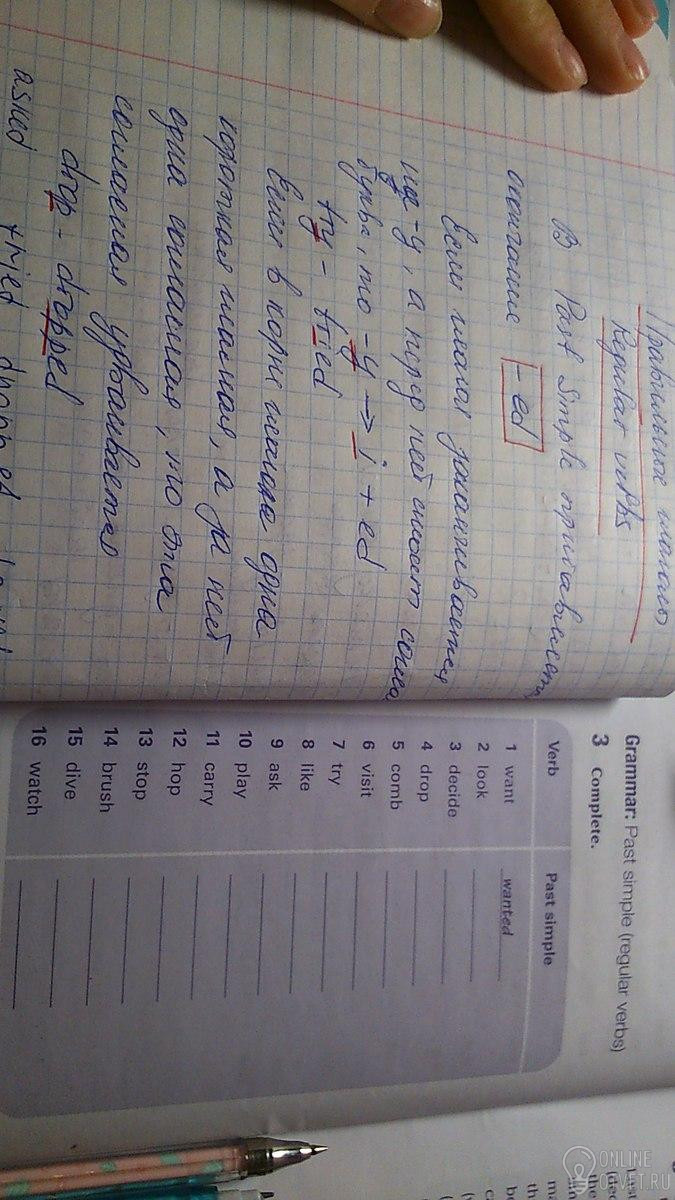 Правильные глаголы
Regular verbs
В Past Simple прибавляется
окончание -ed
Если глагол заканчивается
на -y, а перед ней стоит согла
буква, то -y → i + ed
try - tried
Если в корне глагола одна
короткая гласная, а за ней
одна согласная, то эта
согласная удваивается
drop - dropped
asked tried dropped
Grammar: Past simple (regular verbs)
3 Complete.
Verb Past simple
1 want wanted
2 look
3 decide
4 drop
5 comb
6 visit
7 try
8 like
9 ask
10 play
11 carry
12 hop
13 stop
14 brush
15 dive
16 watch
ONLINE
OTVET.RU